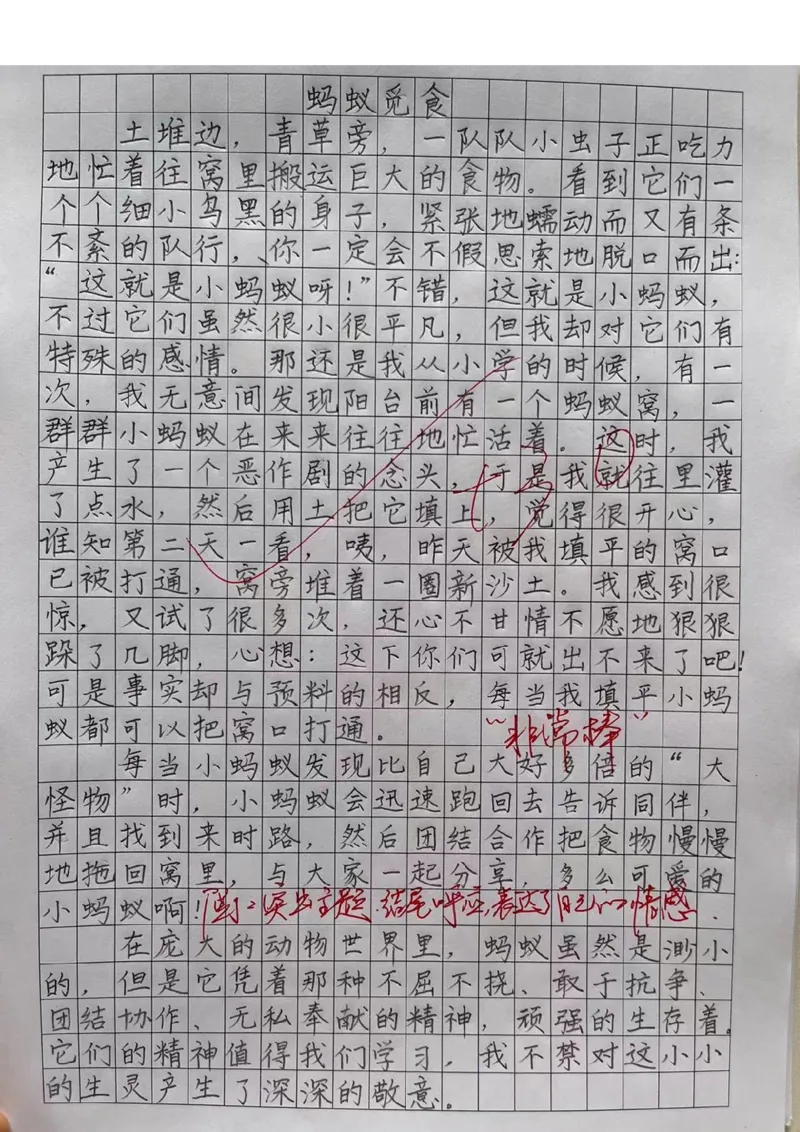 蚂蚁觅食
土堆边，青草旁，一队队小虫子正吃力
地忙着往窝里搬运巨大的食物。看到它们一
个个细小乌黑的身子，紧张地蠕动而又有条
不紊的队行，你一定会不假思索地脱口而出：
“这就是小蚂蚁呀！”不错，这就是小蚂蚁，
不过它们虽然很小很平凡，但我却对它们有
特殊的感情。那还是我从小学的时候，有一
次，我无意间发现阳台前有一个蚂蚁窝，一
群群小蚂蚁在来来往往地忙活着。这时，我
产生了一个恶作剧的念头，于是我就往里灌
了点水，然后用土把它填上，觉得很开心，
谁知第二天一看，咦，昨天被我填平的窝口
已被打通，窝旁堆着一圈新沙土。我感到很
惊，又试了很多次，还心不甘情不愿地狠狠
跺了几脚，心想：这下你们可就出不来了吧！
可是事实却与预料的相反，每当我填平小蚂
蚁都可以把窝口打通。
“非常棒”
每当小蚂蚁发现比自己大好多倍的“大
怪物”时，小蚂蚁会迅速跑回去告诉同伴，
并且找到来时路，然后团结合作把食物慢慢
地拖回窝里，与大家一起分享，多么可爱的
小蚂蚁啊！
突出主题、结尾呼应，表达了自己的情感
在庞大的动物世界里，蚂蚁虽然是渺小
的，但是它凭着那种不屈不挠、敢于抗争、
团结协作、无私奉献的精神，顽强的生存着。
它们的精神值得我们学习，我不禁对这小小
的生灵产生了深深的敬意。